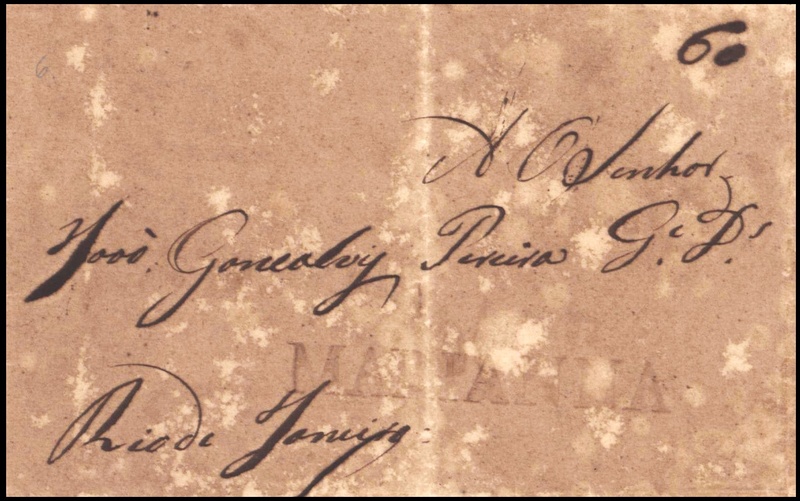 60
6.
A. O Senhor
Joaõ Goncalvez Pereira G.e D.s
MARIANNA
Rio de Janeiro.